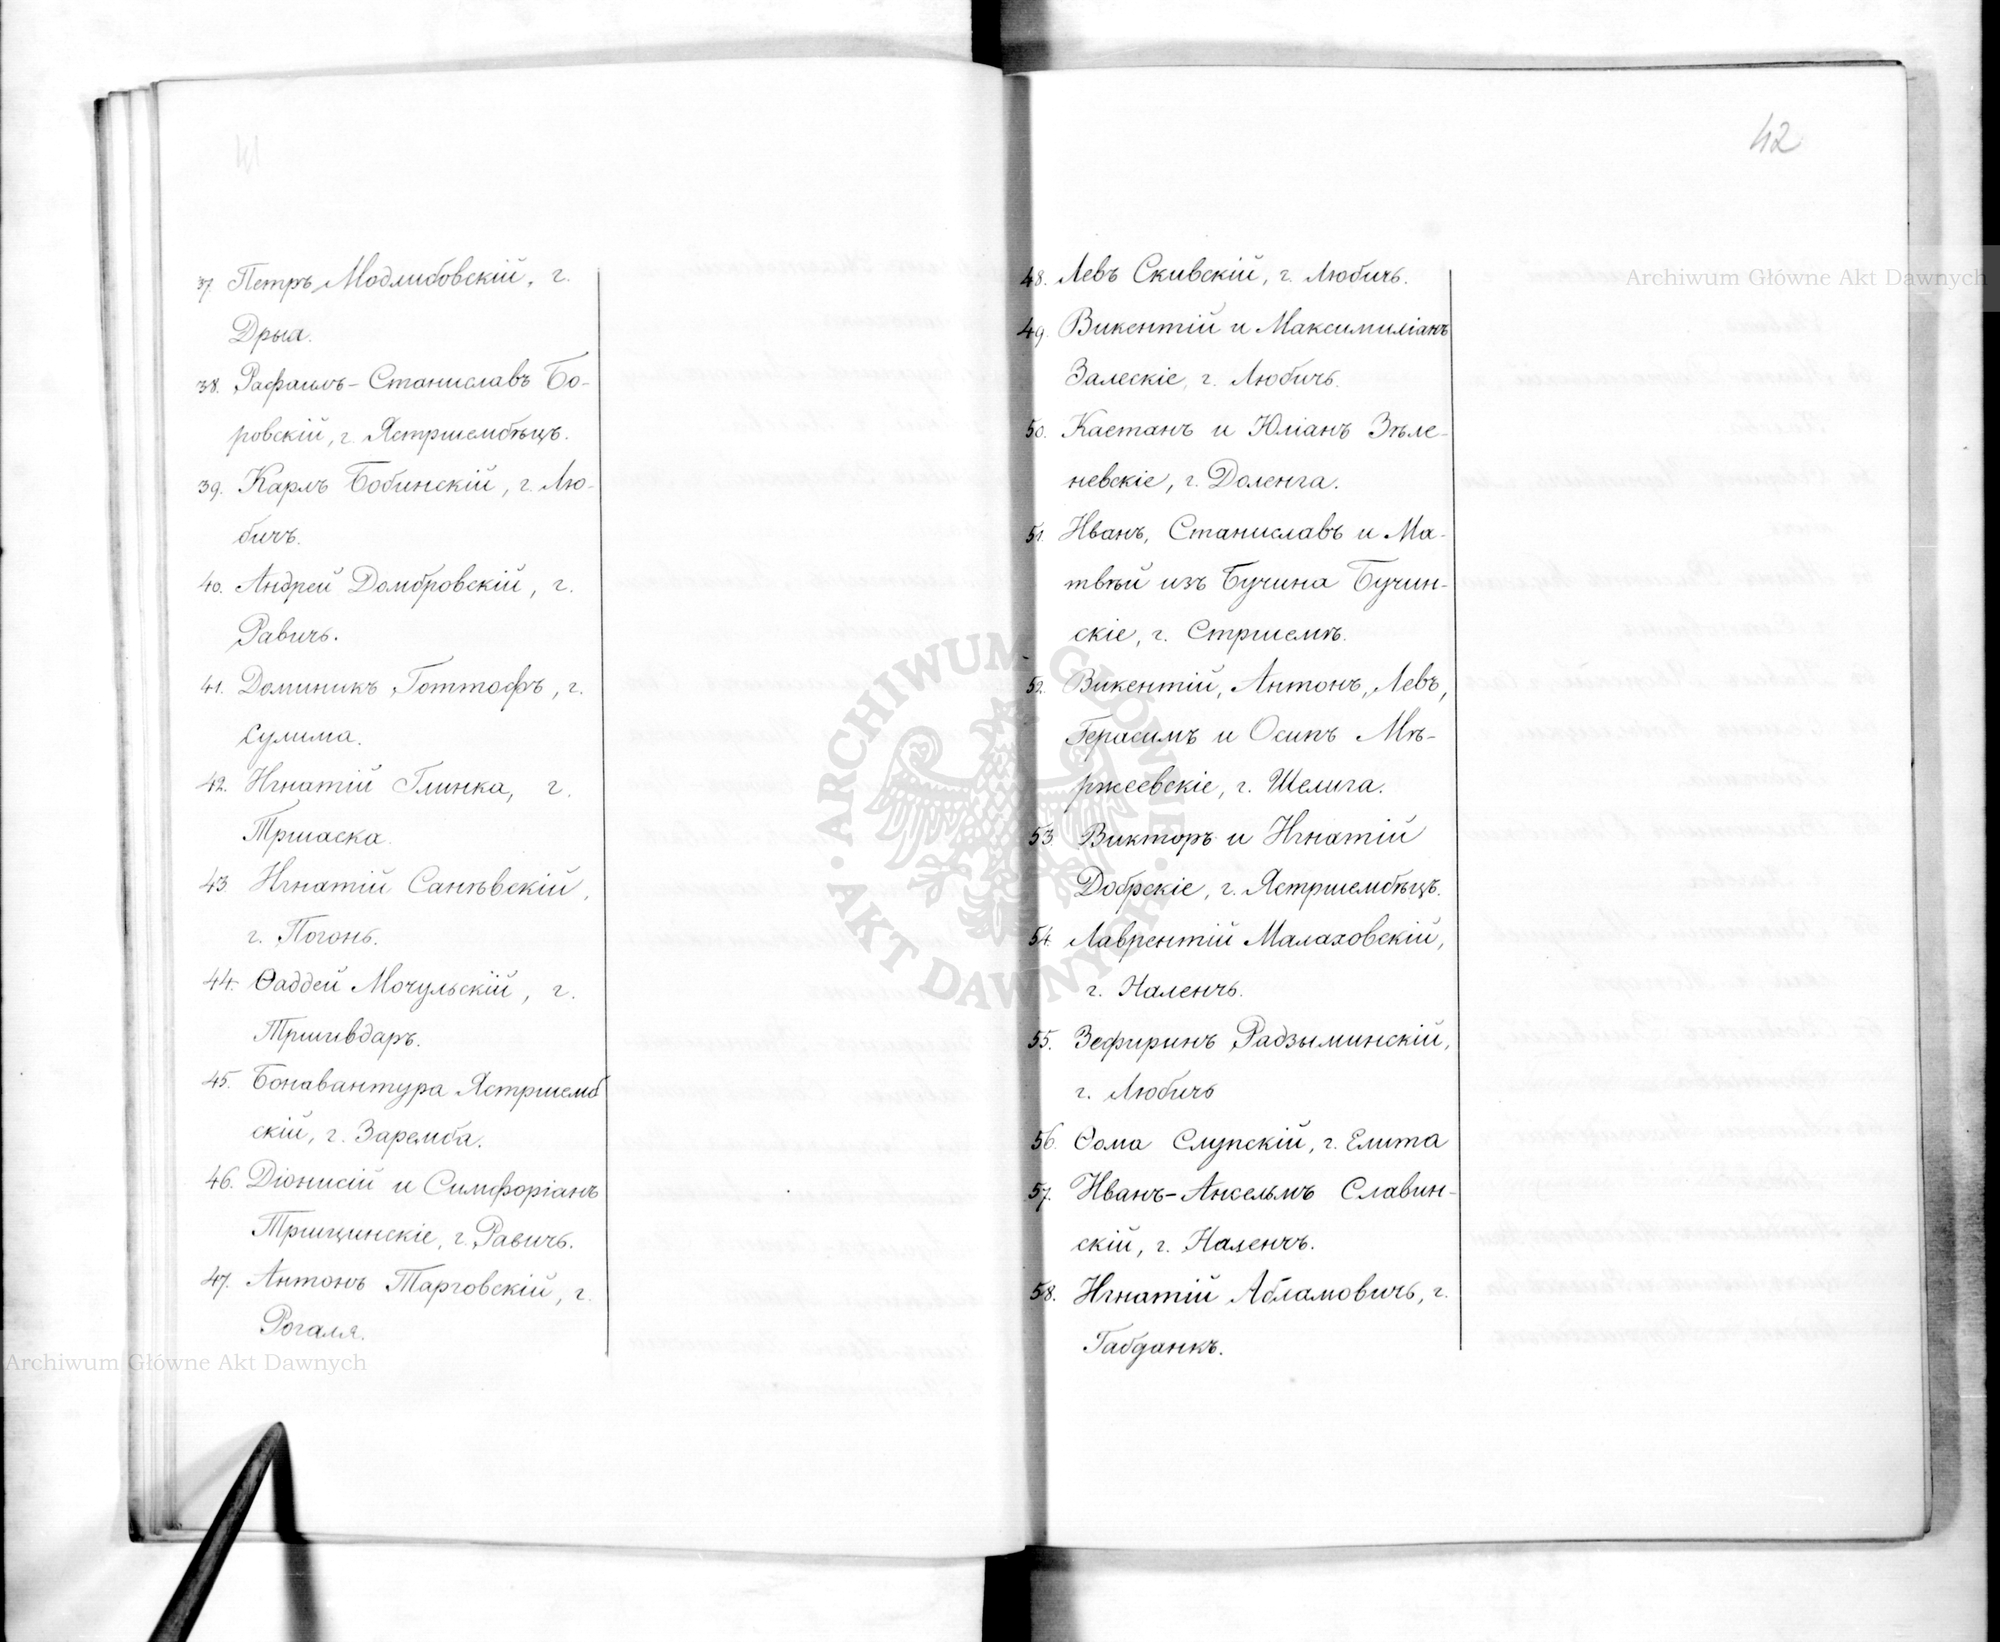 37. Петръ Модлибовскій, г.
Дрыа.
38. Рафаилъ-Станиславъ Бо-
ровскій, г. Ястршембѣцъ.
39. Карлъ Бобинскій, г. Лю-
бичъ.
40. Андрей Домбровскій, г.
Равичъ.
41. Доминикъ Готтофъ, г.
Сулима.
42. Игнатій Глинка, г.
Тршаска.
43. Игнатій Санѣвскій,
г. Погонь.
44. Ѳаддей Мочульскій, г.
Тршивдаръ.
45. Бонавантура Ястршемб
скій, г. Заремба.
46. Діонисій и Симфоріанъ
Тршцинскіе, г. Равичъ.
47. Антонъ Тарговскій, г.
Рогаля.
Archiwum Główne Akt Dawnych
42
48. Левъ Скивскій, г. Любичъ.
Archiwum Główne Akt Dawnych
49. Викентій и Максимиліанъ
Залескіе, г. Любичъ.
50. Каетанъ и Юліанъ Зѣле-
невскіе, г. Доленга.
51. Иванъ, Станиславъ и Ма-
твѣй изъ Бучина Бучин-
скіе, г. Стршемѣ.
52. Викентій, Антонъ, Левъ,
Герасимъ и Осипъ Мѣ-
ржеевскіе, г. Шелига.
53. Викторъ и Игнатій
Добрскіе, г. Ястршембѣцъ.
54. Лаврентій Малаховскій,
г. Наленчъ.
55. Зефиринъ Радзыминскій,
г. Любичъ
56. Ѳома Слупскій, г. Елита
57. Иванъ-Ансельмъ Славин-
скій, г. Наленчъ.
58. Игнатій Абламовичъ, г.
Габданкъ.
ARCHIWUM GŁÓWNE · AKT DAWNYCH ·